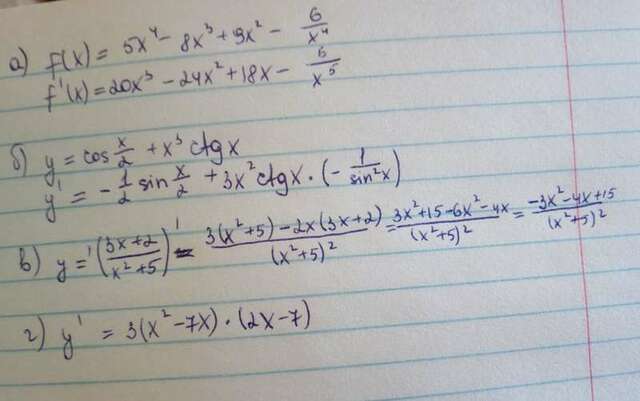 а) f(x) = 5x⁴ - 8x³ + 9x² - 6/x⁴
f'(x) = 20x³ - 24x² + 18x - 6/x⁵
б) y = cos x/2 + x³ ctgx
y' = - 1/2 sin x/2 + 3x² ctgx · (- 1/sin²x)
в) y =' ((3x+2)/(x²+5))' = (3(x²+5) - 2x(3x+2))/(x²+5)² = (3x²+15-6x²-4x)/(x²+5)² = (-3x²-4x+15)/(x²+5)²
г) y' = 3(x²-7x) · (2x-7)